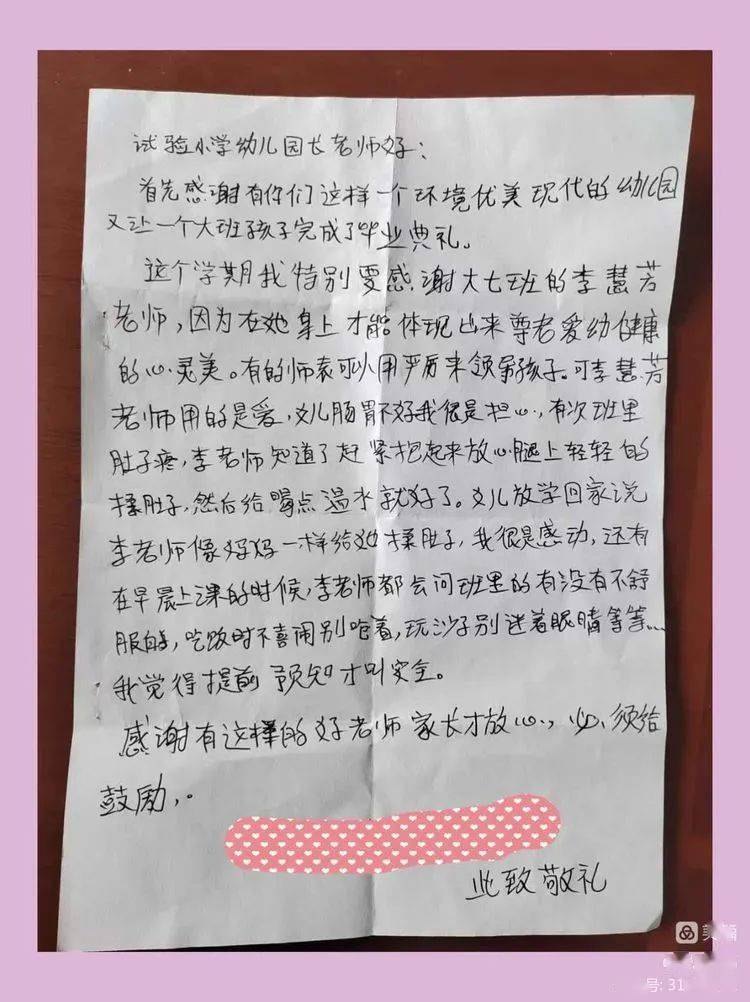 试验小学幼儿园长老师好：
首先感谢有你们这样一个环境优美现代的幼儿园
又让一个大班孩子完成了毕业典礼。
这个学期我特别要感谢大七班的李慧芳
老师，因为在她身上才能体现出来尊老爱幼健康
的心灵美。有的师表可以用严厉来领导孩子。可李慧芳
老师用的是爱，女儿肠胃不好我很是担心，有次班里
肚子疼，李老师知道了赶紧把起来放心腿上轻轻的
揉肚子，然后给喝点温水就好了。女儿放学回家说
李老师像妈妈一样给她揉肚子，我很是感动，还有
在早晨上课的时候，李老师都会问班里的有没有不舒
服的，吃饭时不喜闹别呛着，玩沙子别迷着眼睛等等…
我觉得提前预知才叫安全。
感谢有这样的好老师家长才放心，必须给
鼓励，。
此致敬礼
美篇
号: 31